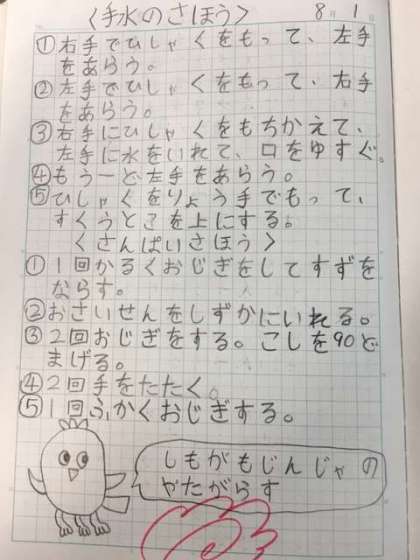 〈手水のさほう〉 8 1
①右手でひしゃくをもって、左手
をあらう。
②左手でひしゃくをもって、右手
をあらう。
③右手にひしゃくをもちかえて、
左手に水をいれて、口をゆすぐ。
④もう一ど左手をあらう。
⑤ひしゃくをりょう手でもって、
すくうとこを上にする。
〈さんぱいさほう〉
①1回かるくおじぎをしてすずを
ならす。
②おさいせんをしずかにいれる。
③2回おじぎをする。こしを90ど
まげる。
④2回手をたたく。
⑤1回ふかくおじぎする。
しもがもじんじゃの
やたがらす